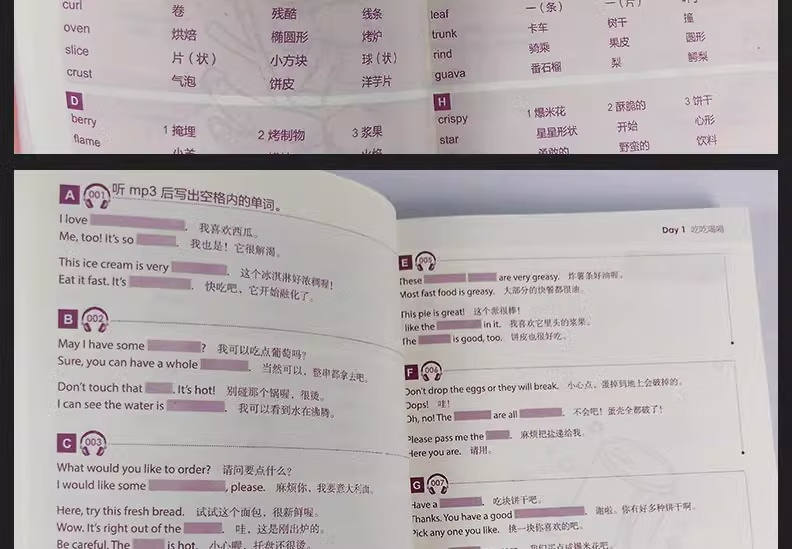 curl 卷 残酷 线条
oven 烘焙 椭圆形 烤炉
slice 片（状） 小方块 球（状）
crust 气泡 饼皮 洋芋片
D
berry 1 掩埋 2 烤制物 3 浆果
flame
leaf 一（条） 一（片）
trunk 卡车 树干 撞
rind 骑乘 果皮 圆形
guava 番石榴 梨 鳄梨
H
crispy 1 爆米花 2 酥脆的 3 饼干
star 星星形状 开始 心形
勇敢的 野蛮的 饮料
A 001 听 mp3 后写出空格内的单词。
I love . 我喜欢西瓜。
Me, too! It's so . 我也是！它很解渴。
This ice cream is very . 这个冰淇淋好浓稠喔！
Eat it fast. It's . 快吃吧，它开始融化了。
B 002
May I have some ? 我可以吃点葡萄吗？
Sure, you can have a whole . 当然可以，整串都拿去吧。
Don't touch that . It's hot! 别碰那个锅喔，很烫。
I can see the water is . 我可以看到水在沸腾。
C 003
What would you like to order? 请问要点什么？
I would like some , please. 麻烦你，我要意大利面。
Here, try this fresh bread. 试试这个面包，很新鲜喔。
Wow. It's right out of the . 哇，这是刚出炉的。
Be careful. The is hot. 小心喔，托盘还很烫。
Day 1 吃吃喝喝
E 005
These are very greasy. 炸薯条好油喔。
Most fast food is greasy. 大部分的快餐都很油。
This pie is great! 这个派很棒！
I like the in it. 我喜欢它里头的浆果。
The is good, too. 饼皮也很好吃。
F 006
Don't drop the eggs or they will break. 小心点，蛋掉到地上会破掉的。
Oops! 哇！
Oh, no! The are all . 不会吧！蛋壳全都破了！
Please pass me the . 麻烦把盐递给我。
Here you are. 请用。
G 007
Have a . 吃块饼干吧。
Thanks. You have a good . 谢啦。你有好多种饼干啊。
Pick any one you like. 挑一块你喜欢的吧。